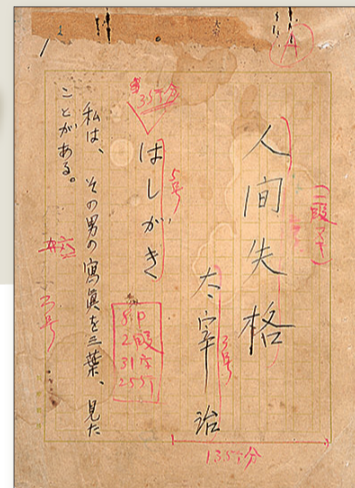 人間失格
太宰治
はしがき
私は、その男の寫眞を三葉、見た
ことがある。
5号
3号